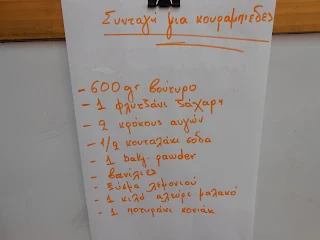 Συνταγή για κουραμπιέδες
- 600 gr βούτυρο
- 1 φλυτζάνι ζάχαρη
- 2 κρόκους αυγών
- 1/2 κουταλάκι σόδα
- 1 bak. pawder
- βανίλιες
- ξύσμα λεμονιού
- 1 κιλό αλεύρι μαλακό
- 1 ποτηράκι κονιάκ